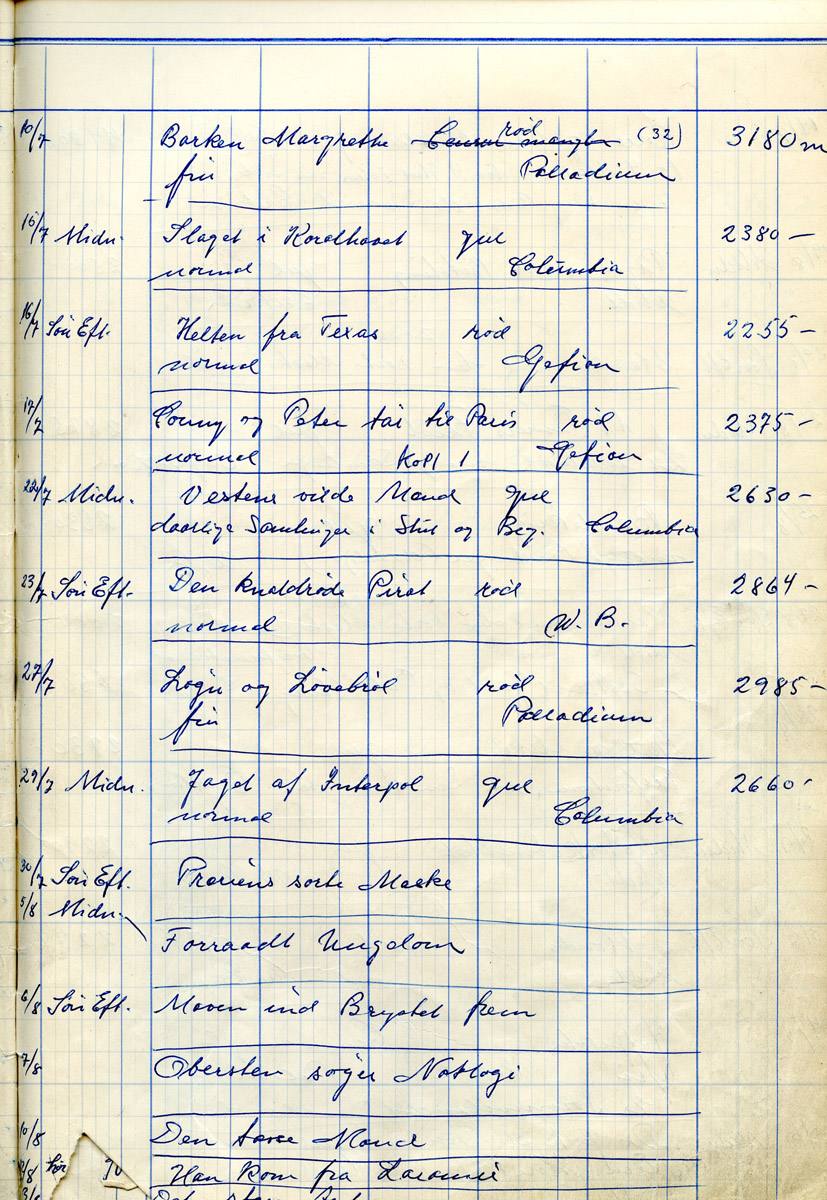 10/7 Barken Margrethe rød (32) 3180 m
fin Palladium
15/7 Midn. Slaget i Koralhavet gul 2380 —
normal Columbia
16/7 Søn Eft. Helten fra Texas rød 2255 —
normal Gefion
17/7 Conny og Peter tar til Paris rød 2375 —
normal Kopi 1 Gefion
22/7 Midn. Vestens vilde Mand gul 2630 —
daarlige Samlinger i Slut og Beg. Columbia
23/7 Søn Eft. Den knaldrøde Pirat rød 2864 —
normal W. B.
27/7 Løgn og Løvebrøl rød 2985 —
fin Palladium
29/7 Midn. Jaget af Interpol gul 2660 -
normal Columbia
30/7 Søn Eft. Præriens sorte Maske
5/8 Midn. Forraadt Ungdom
6/8 Søn Eft. Maven ind Brystet frem
7/8 Obersten søger Natlogi
10/8 Den tavse Mand
Han kom fra Laramie